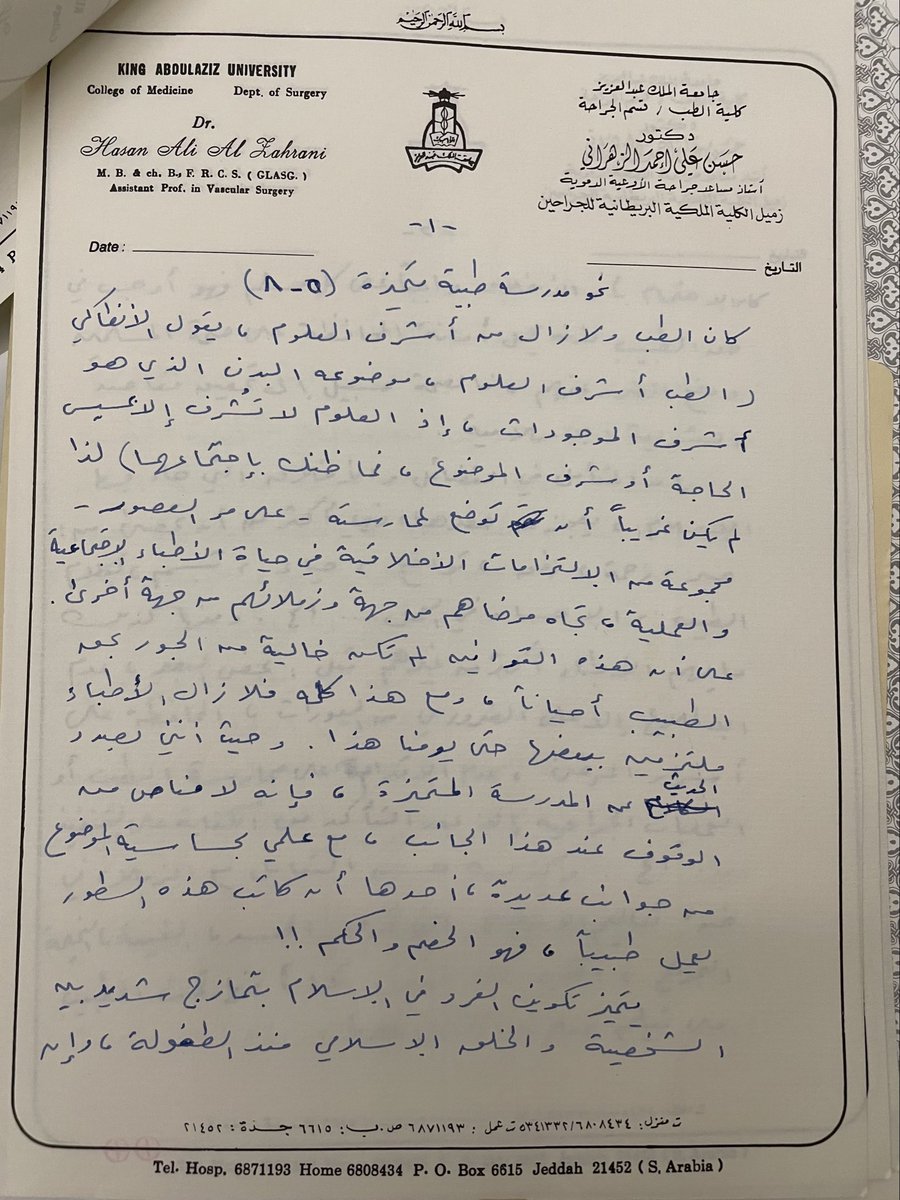 بسم الله الرحمن الرحيم
KING ABDULAZIZ UNIVERSITY
College of Medicine Dept. of Surgery
Dr.
Hasan Ali Al Zahrani
M. B. & ch. B., F. R. C. S. ( GLASG. )
Assistant Prof. in Vascular Surgery
جامعة الملك عبد العزيز
كلية الطب / قسم الجراحة
دكتور
حسن علي احمد الزهراني
أستاذ مساعد جراحة الأوعية الدموية
زميل الكلية الملكية البريطانية للجراحين
-١-
Date :
التاريخ
نحو مدرسة طبية متميزة (٥-٨)
كان الطب ولازال من أشرف العلوم ، يقول الأنطاكي
( الطب أشرف العلوم ، موضوعه البدن الذي هو
أشرف الموجودات ، إذ العلوم لا تشرف إلا بمسيس
الحاجة أو شرف الموضوع ، فما ظنك بإجتماعهما ) لذا
لم يكن غريباً أن توضع لممارسته - على مر العصور -
مجموعة من الإلتزامات الأخلاقية في حياة الأطباء الإجتماعية
والعملية ، تجاه مرضاهم من جهة وزملائهم من جهة أخرى .
على أن هذه القوانين لم تكن خالية من الجور بحق
الطبيب أحياناً ، ومع هذا كله فلازال الأطباء
ملتزمين ببعضها حتى يومنا هذا . وحيث أنني بصدد
الحديث عن المدرسة المتميزة ، فإنه لا مناص من
الوقوف عند هذا الجانب ، مع علمي بحساسية الموضوع
من جوانب عديدة ، أحدها أن كاتب هذه السطور
يعمل طبيباً ، فهو الخصم والحكم !!
يتميز تكوين الفرد في الإسلام بتمازج شديد بين
الشخصية والخلق الاسلامي منذ الطفولة ، وإن
ت منزل : ٥٣٤١٣٣٢/٦٨٠٨٤٣٤ ت عمل : ٦٨٧١١٩٣ ص.ب : ٦٦١٥ جدة : ٢١٤٥٢
Tel. Hosp. 6871193 Home 6808434 P. O. Box 6615 Jeddah 21452 ( S. Arabia )